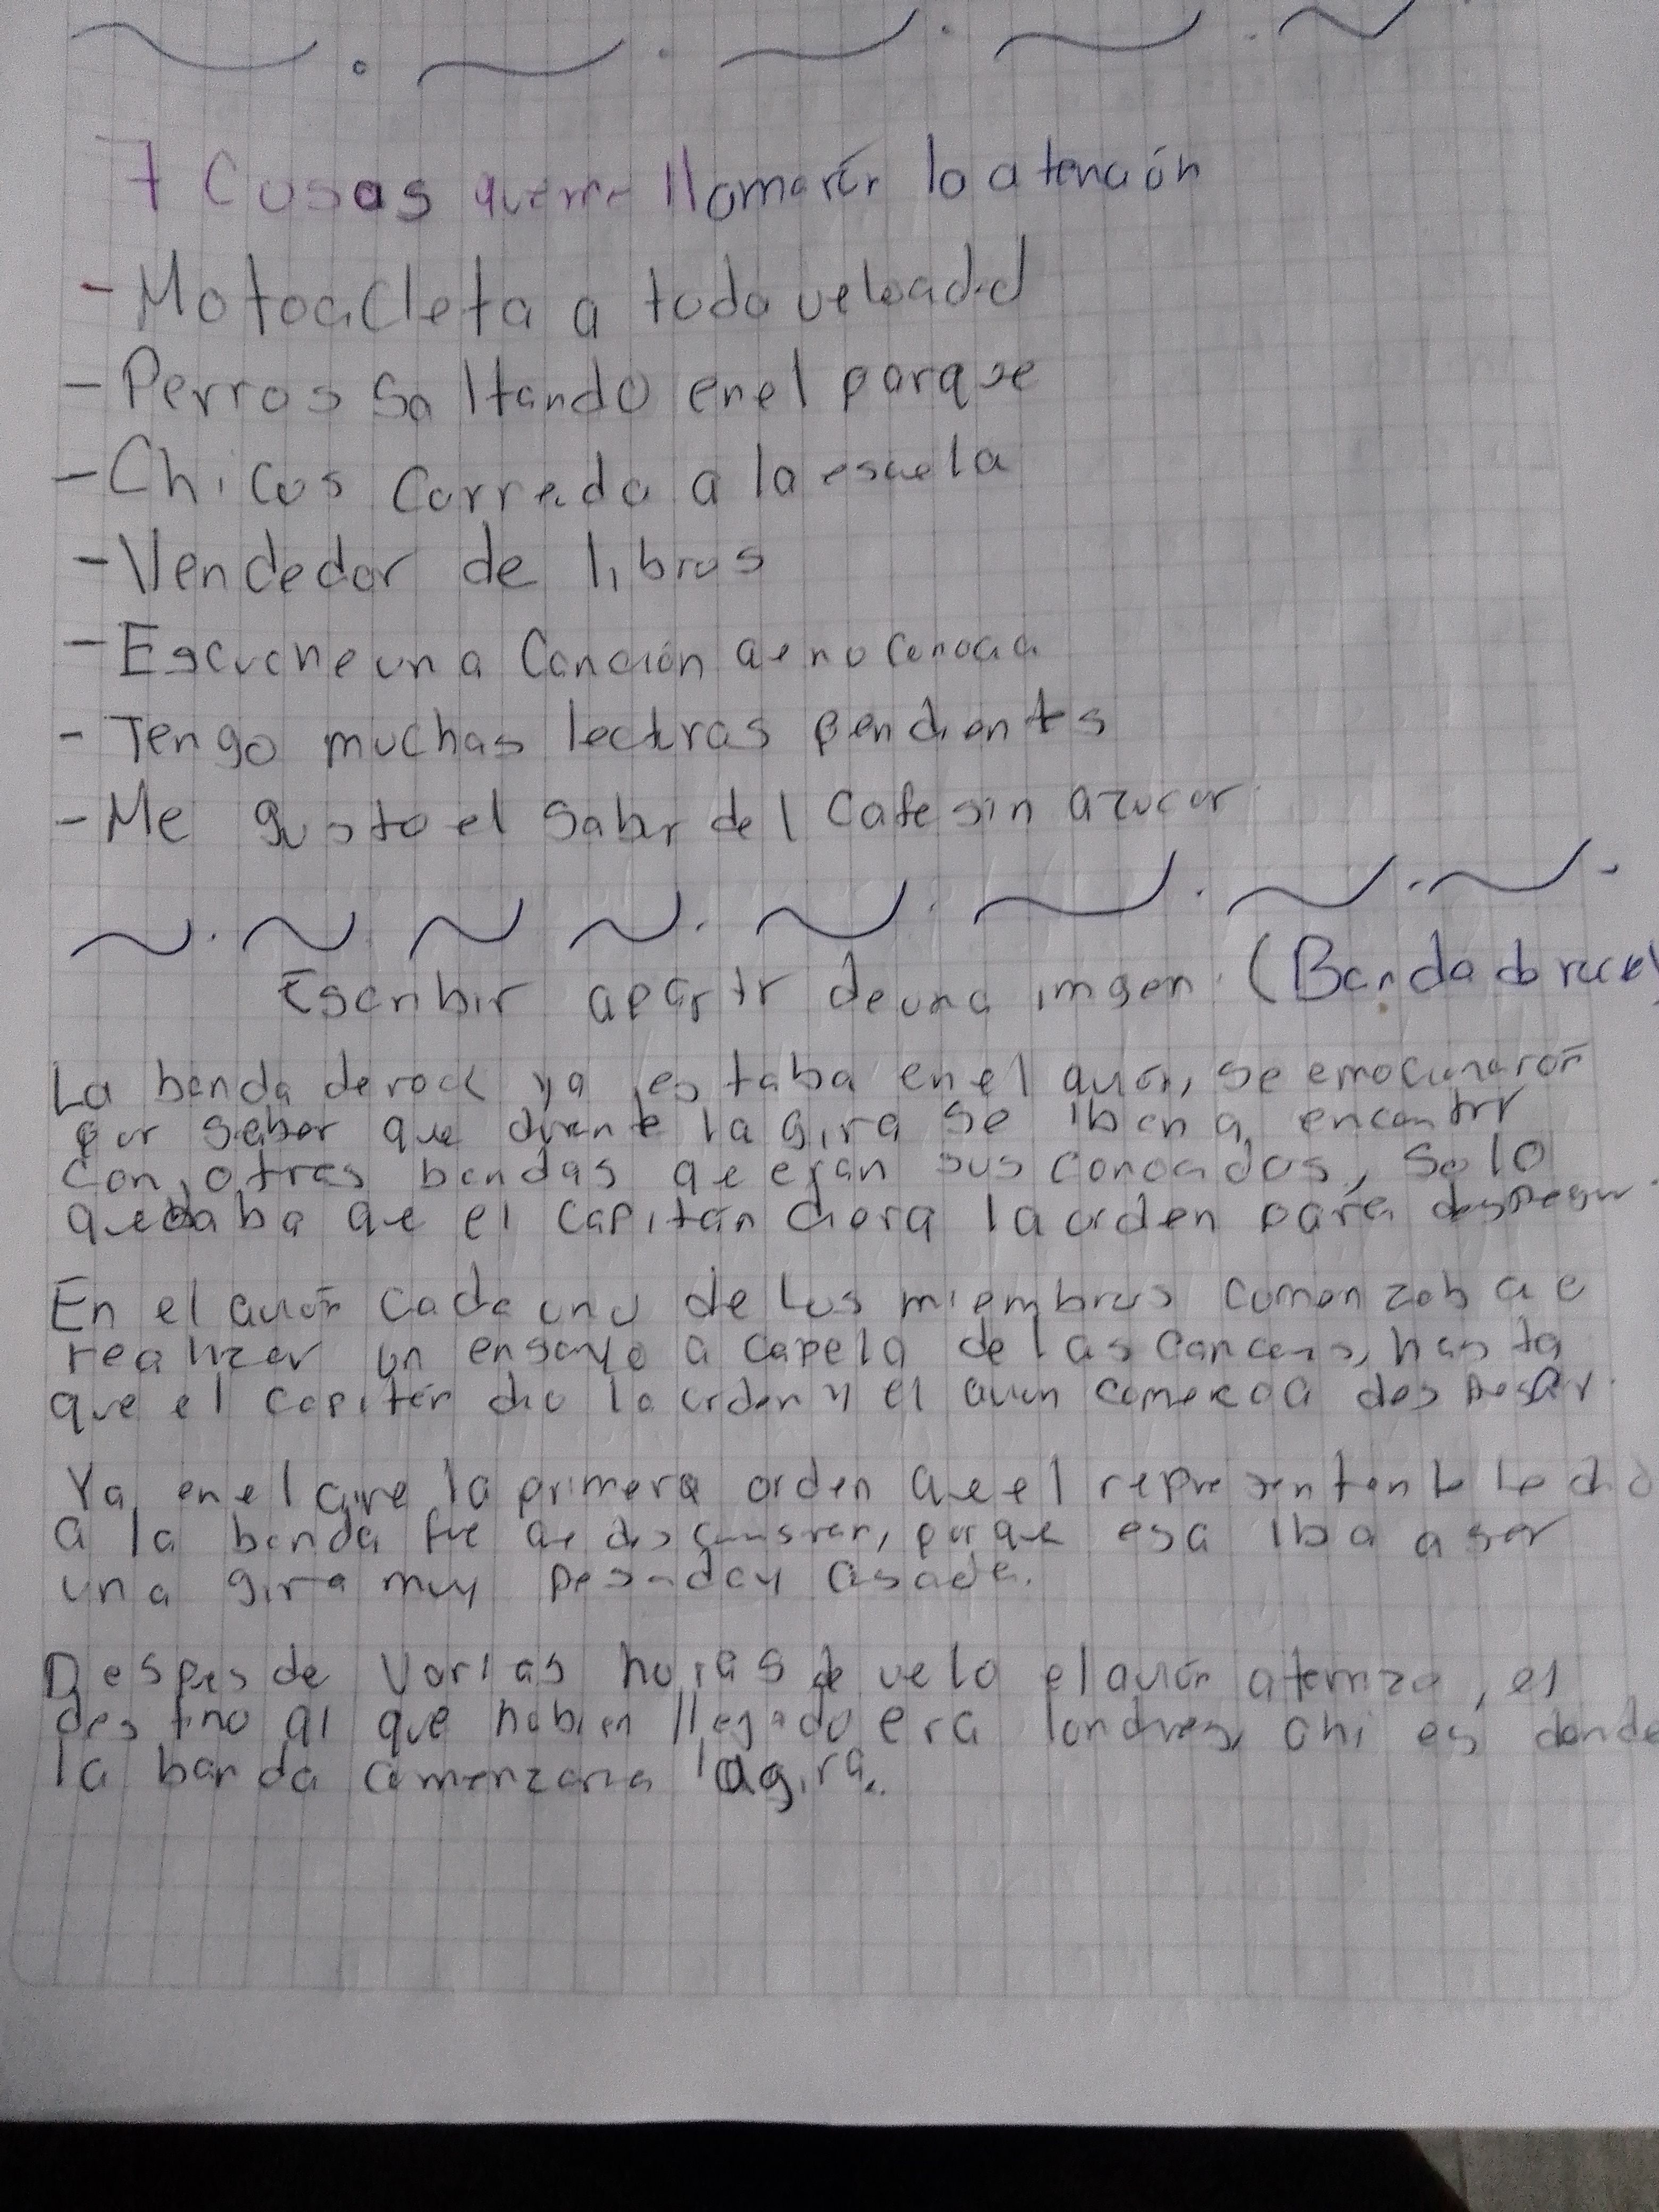 7 Cosas que me llamarón la atención
- Motocicleta a toda velocidad
- Perros saltando en el parque
- Chicos corriedo a la escuela
- Vendedor de libros
- Escuche una canción qe no conocia
- Tengo muchas lecturas pendients
- Me gusto el sabor del cafe sin azucar
Escribir apartir de una imgen (Banda de rock)
La banda de rock ya estaba en el avión, se emocionarón
por saber que durante la gira se iban a encontrr
con otras bandas qe eran sus conocidos, solo
quedaba qe el capitán diera la orden para despegar.
En el avión cada uno de los miembros comenzaba a
realizar un ensayo a capela de las cancens, hasta
que el capitán dio la orden y el avion comenzo a despegar.
Ya en el aire la primera orden qe el representante le dio
a la banda fue qe descansaran, porque esa iba a ser
una gira muy pesada y
Despues de varias horas de velo el avión aterrizo, el
destino al que habian llegado era londres, ahi es donde
la banda comenzaria la gira.